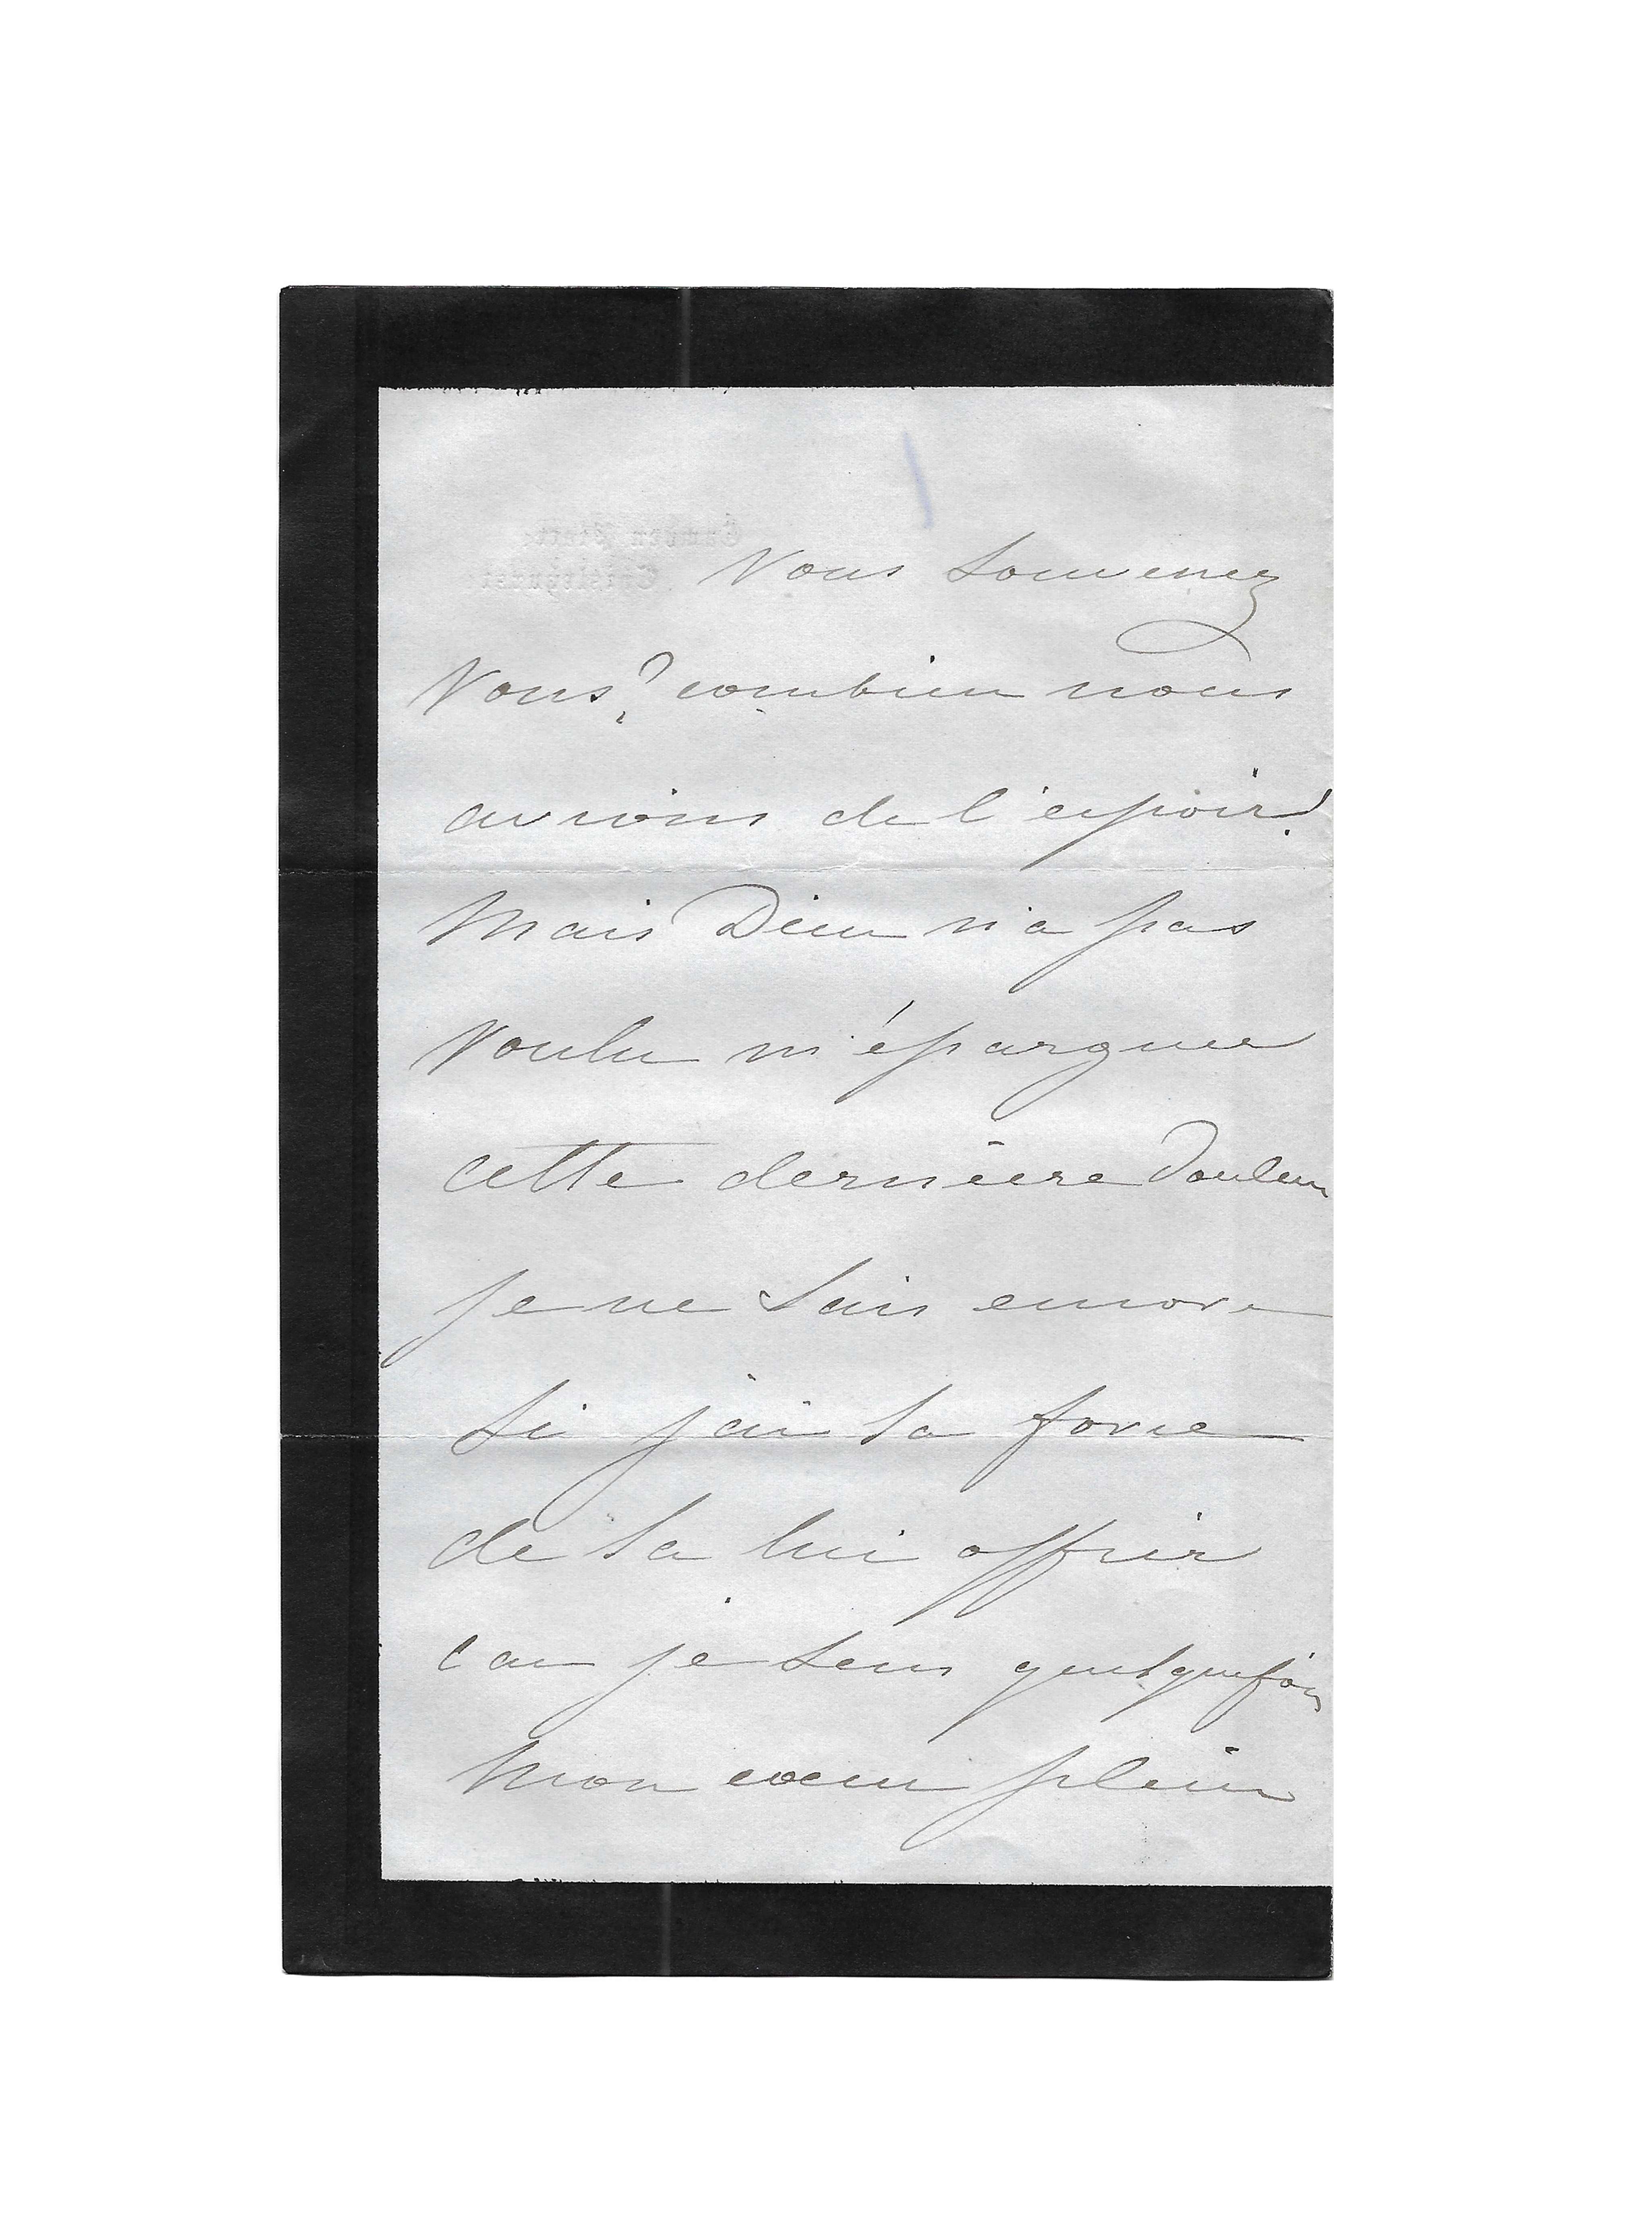 Camden Place
Chislehurst
Vous souvenez
Vous? combien nous
avions de l'espoir!
Mais Dieu n'a pas
voulu m'épargner
cette dernière douleur
je ne sais encore
si j'ai la force
de la lui offrir
car je sens quelquefois
mon coeur plein